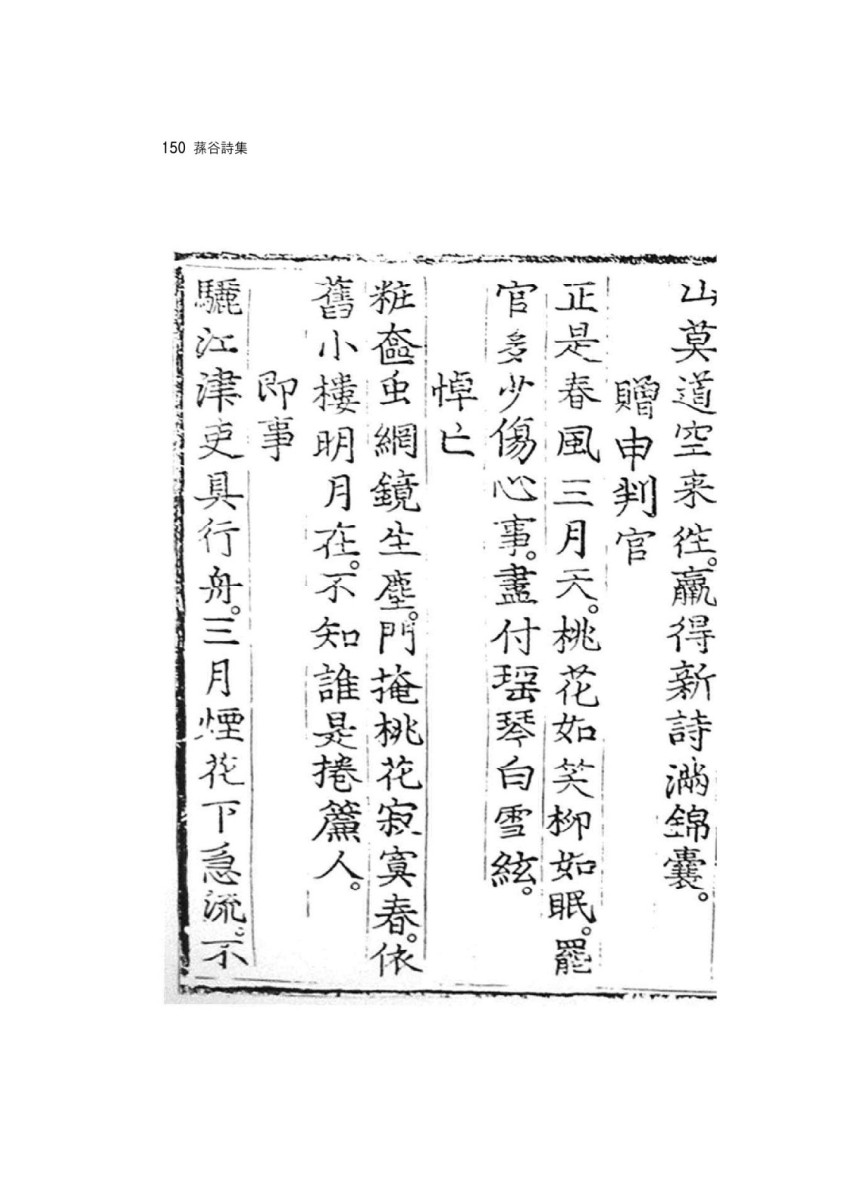 150 蓀谷詩集
山莫道空来徃。贏得新詩滿錦囊。
贈申判官
正是春風三月天。桃花如笑柳如眠。罷
官多少傷心事。盡付瑶琴白雪絃。
悼亡
粧奩虫網鏡生塵。門掩桃花寂寞春。依
舊小樓明月在。不知誰是捲簾人。
即事
驪江津吏具行舟。三月煙花下急流。不